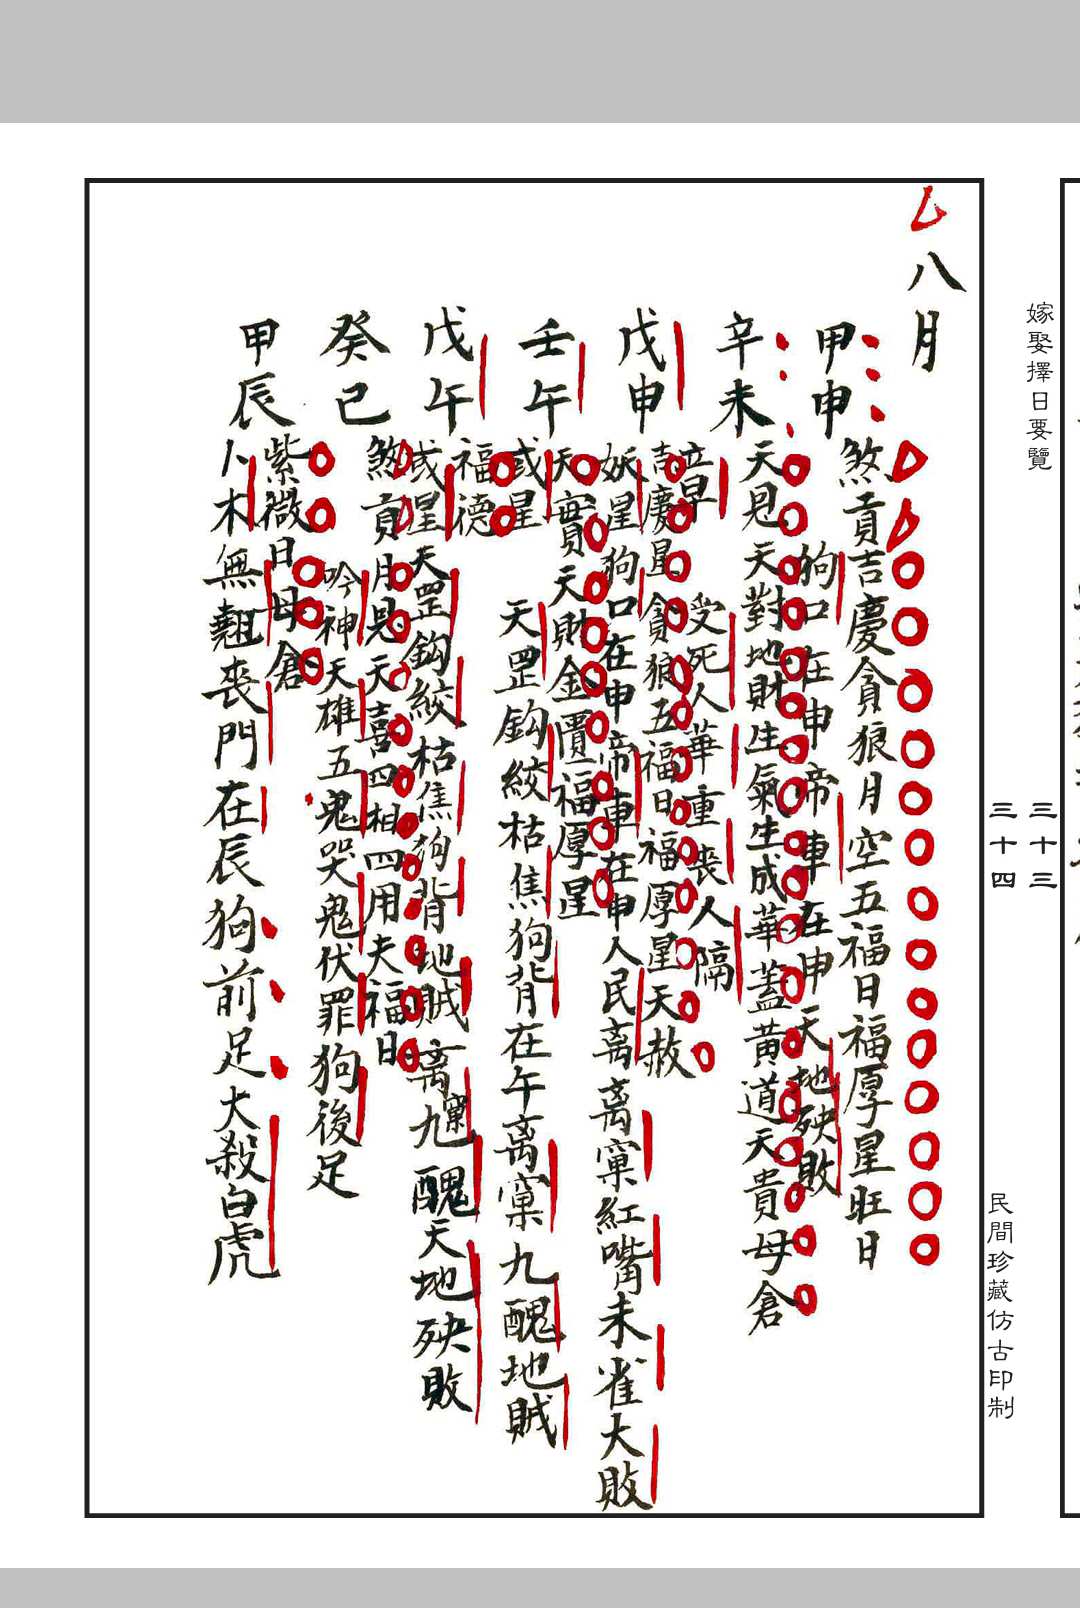 嫁娶擇日要覽
三十三
三十四
民間珍藏仿古印制
八月
甲申
煞貢吉慶貪狼月空五福日福厚星旺日
狗口在申帝車在申天地殃敗
辛未
天恩天對地財生氣生成華蓋黃道天貴母倉
章星
受死人華重喪人隔
戊申
吉慶星貪狼五福日福厚星天赦
妖星狗口在申帝車在申人民离离窠紅嘴朱雀大敗
壬午
天寶天財金匱福厚星
或星
天罡鈎絞枯焦狗背在午离窠九醜地賊
戊午
福德
或星天罡鈎絞枯焦狗背地賊离窠九醜天地殃敗
癸巳
煞貢月恩天喜四相四用天福日
吟神天雄五鬼哭鬼伏罪狗後足
甲辰
紫微日母倉
卜木無翹喪門在辰狗前足大殺白虎